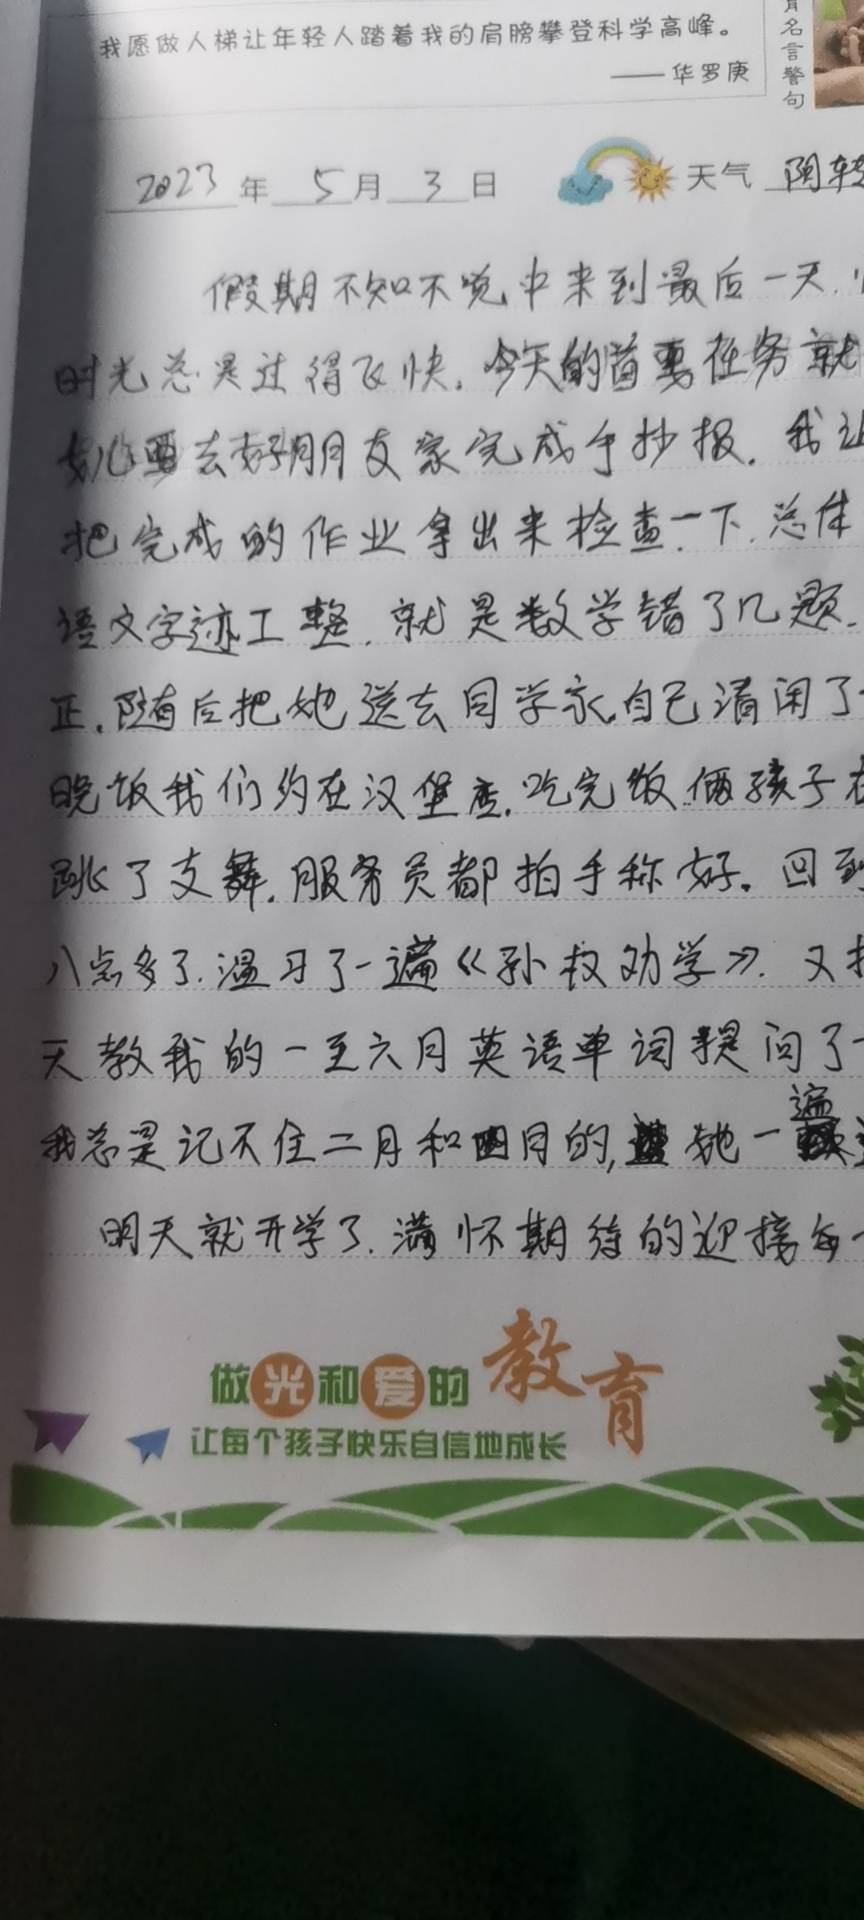 我愿做人梯让年轻人踏着我的肩膀攀登科学高峰。
——华罗庚
名言警句
2023年5月3日 天气 阴转
假期不知不觉中来到最后一天.
时光总是过得飞快.今天的首要任务就
女儿要去好朋友家完成手抄报.我让
把完成的作业拿出来检查一下.总体
语文字迹工整.就是数学错了几题.
正.随后把她送去同学家.自己清闲了
晚饭我们约在汉堡店.吃完饭俩孩子在
跳了支舞.服务员都拍手称好。回到
八点多了.温习了一遍《孙权劝学》.又把
天教我的一至六月英语单词提问了一
我总是记不住二月和四月的,她一遍
明天就开学了.满怀期待的迎接每一
做光和爱的教育
让每个孩子快乐自信地成长